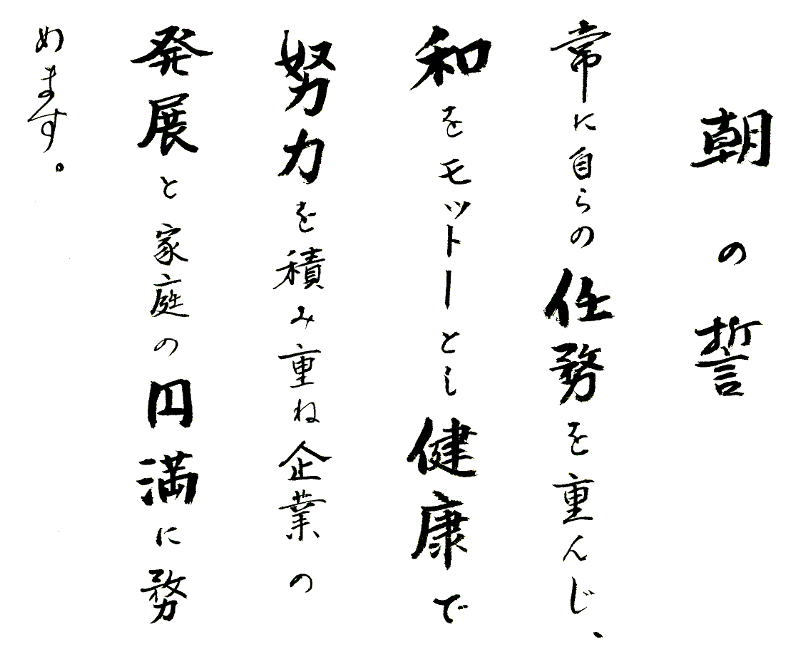 朝の誓
常に自らの任務を重んじ、
和をモットーとし健康で
努力を積み重ね企業の
発展と家庭の円満に務
めます。